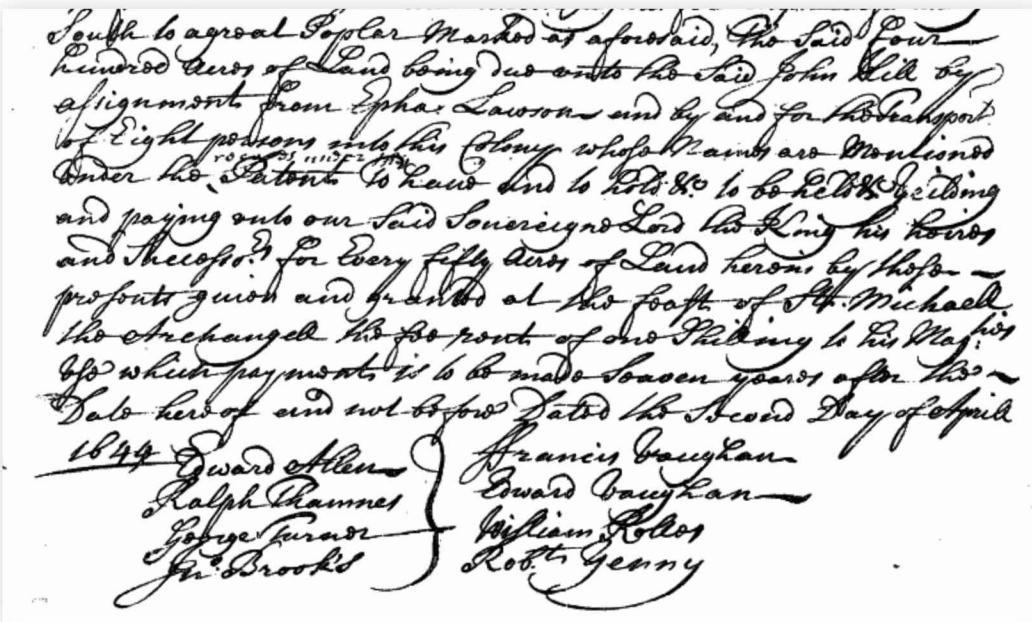 South to a great Poplar Marked as aforesaid, The Said Four
hundred Acres of Land being due unto the Said John Hill by
assignment from Epha: Lawson and by and for the Transport
of Eight persons into this Colony whose Names are Mentioned
records under this
under the Patent To have and to hold &c to be held &c Yeilding
and paying unto our Said Sovereigne Lord the King his heires
and Successors. for Every fifty Acres of Land herein by these
presents given and granted at the feast of St. Michaell
the Archangell the fee rent of one Shilling to his Maj:ties
Use which payment is to be made Seaven yeares after the
Date hereof and not before Dated the Second Day of Aprill
1644 Edward Allen Francis Vaughan
Ralph Thamnes Edward Vaughan
George Turner William Rolles
Jno. Brook's Robt. Yenny